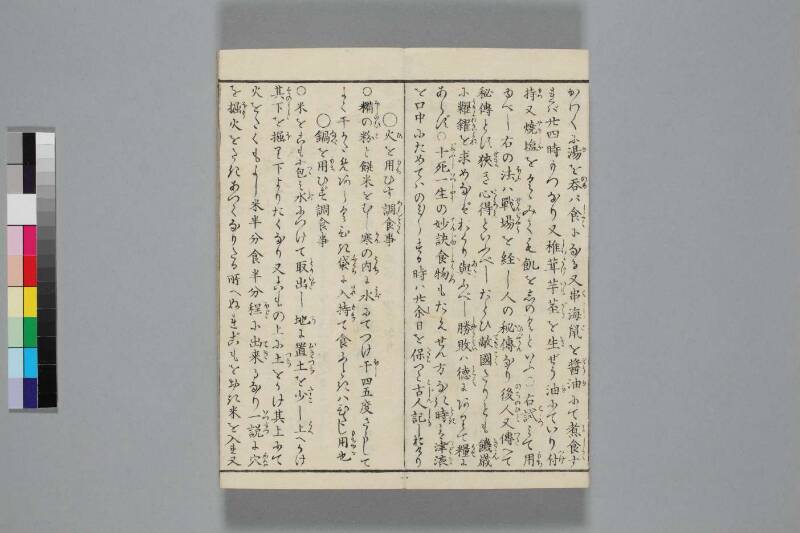 かわくに湯を呑ば食になる又串海鼠を醤油にて煮食す
れば廿四時もつなり又椎茸芋茎を生ぜう油にていり付
持又焼塩をくらゐみても飢をしのぐといふ○右試みて用
ゆべし右の法ハ戦場を経し人の秘傳なり後人又傳へて
秘傳とハ狭き心得といふべしたとひ敵國たりとも饑歳
に糴を求めなばおくり與ふべし勝敗ハ徳にありて糧に
あらず○十死一生の妙訣食物もたえせん方なき時は津液
を口中にためてハのむべし其時ハ廿余日を保つと古人記しおけり
○火を用ひず調食事
○糯の粉を饌米をむし寒の内に水にてつけ干四五度さらして
よく干かため置袋に入持て食ふときハひだし用也
○鍋を用ひず調食事
○米をこもに包ミ水につけて取出し地に置土を少し上へかけ
其下を掘り下よりたくなり又こもの上に土をかけ其上にて
火をたくもよし米半分食半分程に出来るなり一説に穴
を掘火をたきあつくなりたる所へぬれこもを敷き米を入れ又